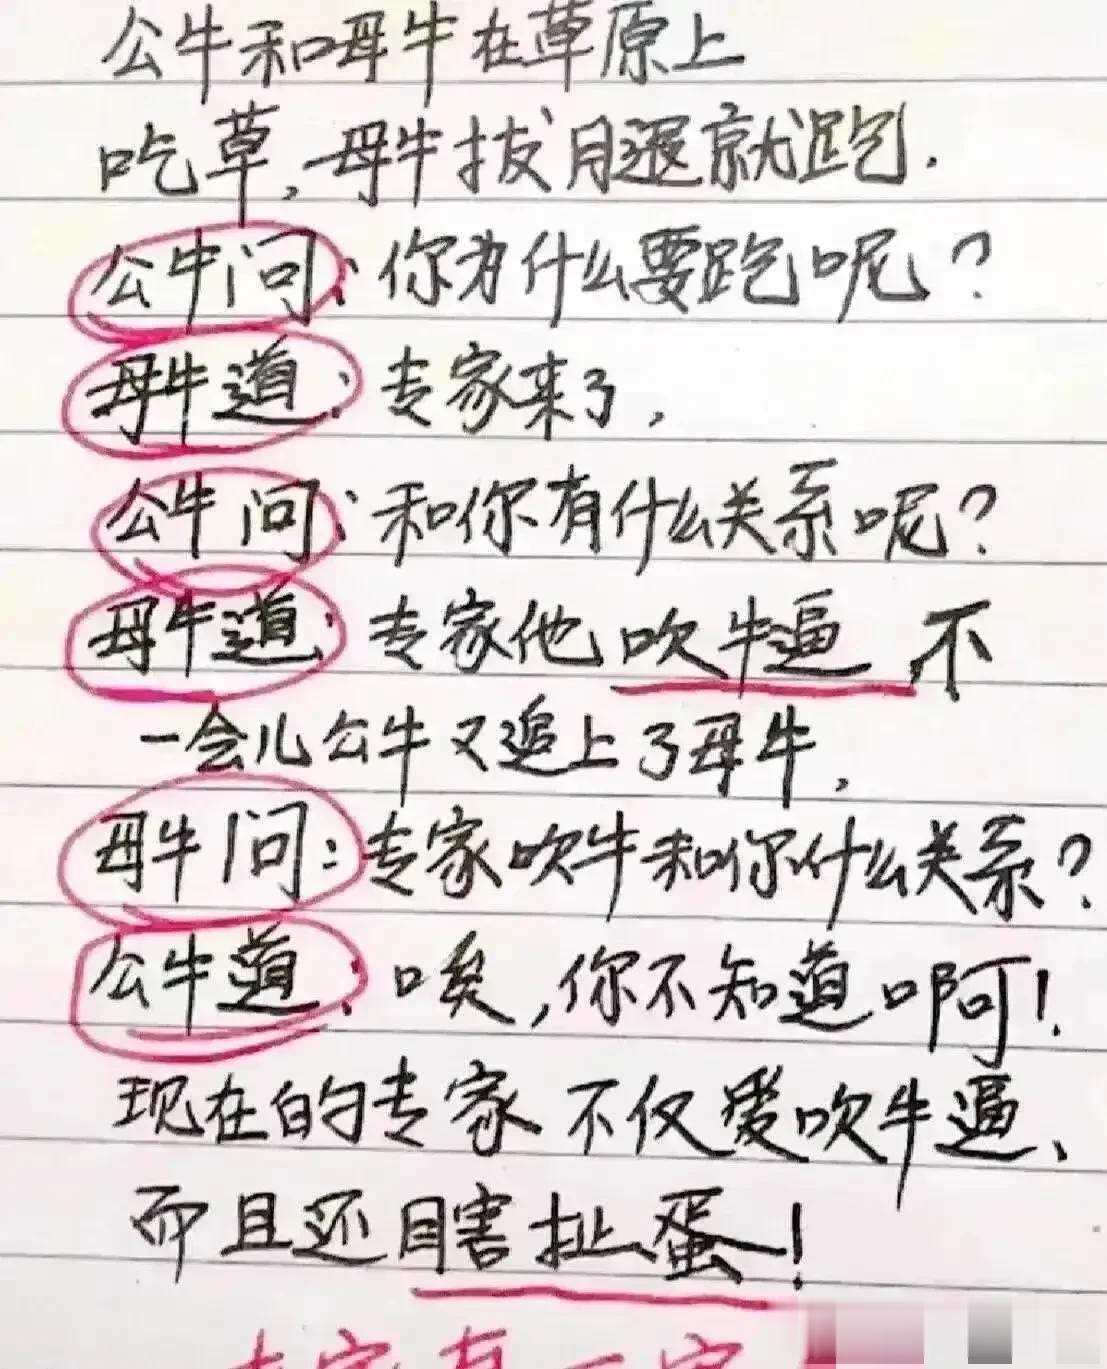 公牛和母牛在草原上
吃草,母牛拔腿就跑.
公牛问:你为什么要跑呢?
母牛道:专家来了,
公牛问:和你有什么关系呢?
母牛道:专家他吹牛逼,不
一会儿公牛又追上了母牛,
母牛问:专家吹牛和你什么关系?
公牛道:唉,你不知道啊!
现在的专家不仅爱吹牛逼、
而且还瞎扯蛋!